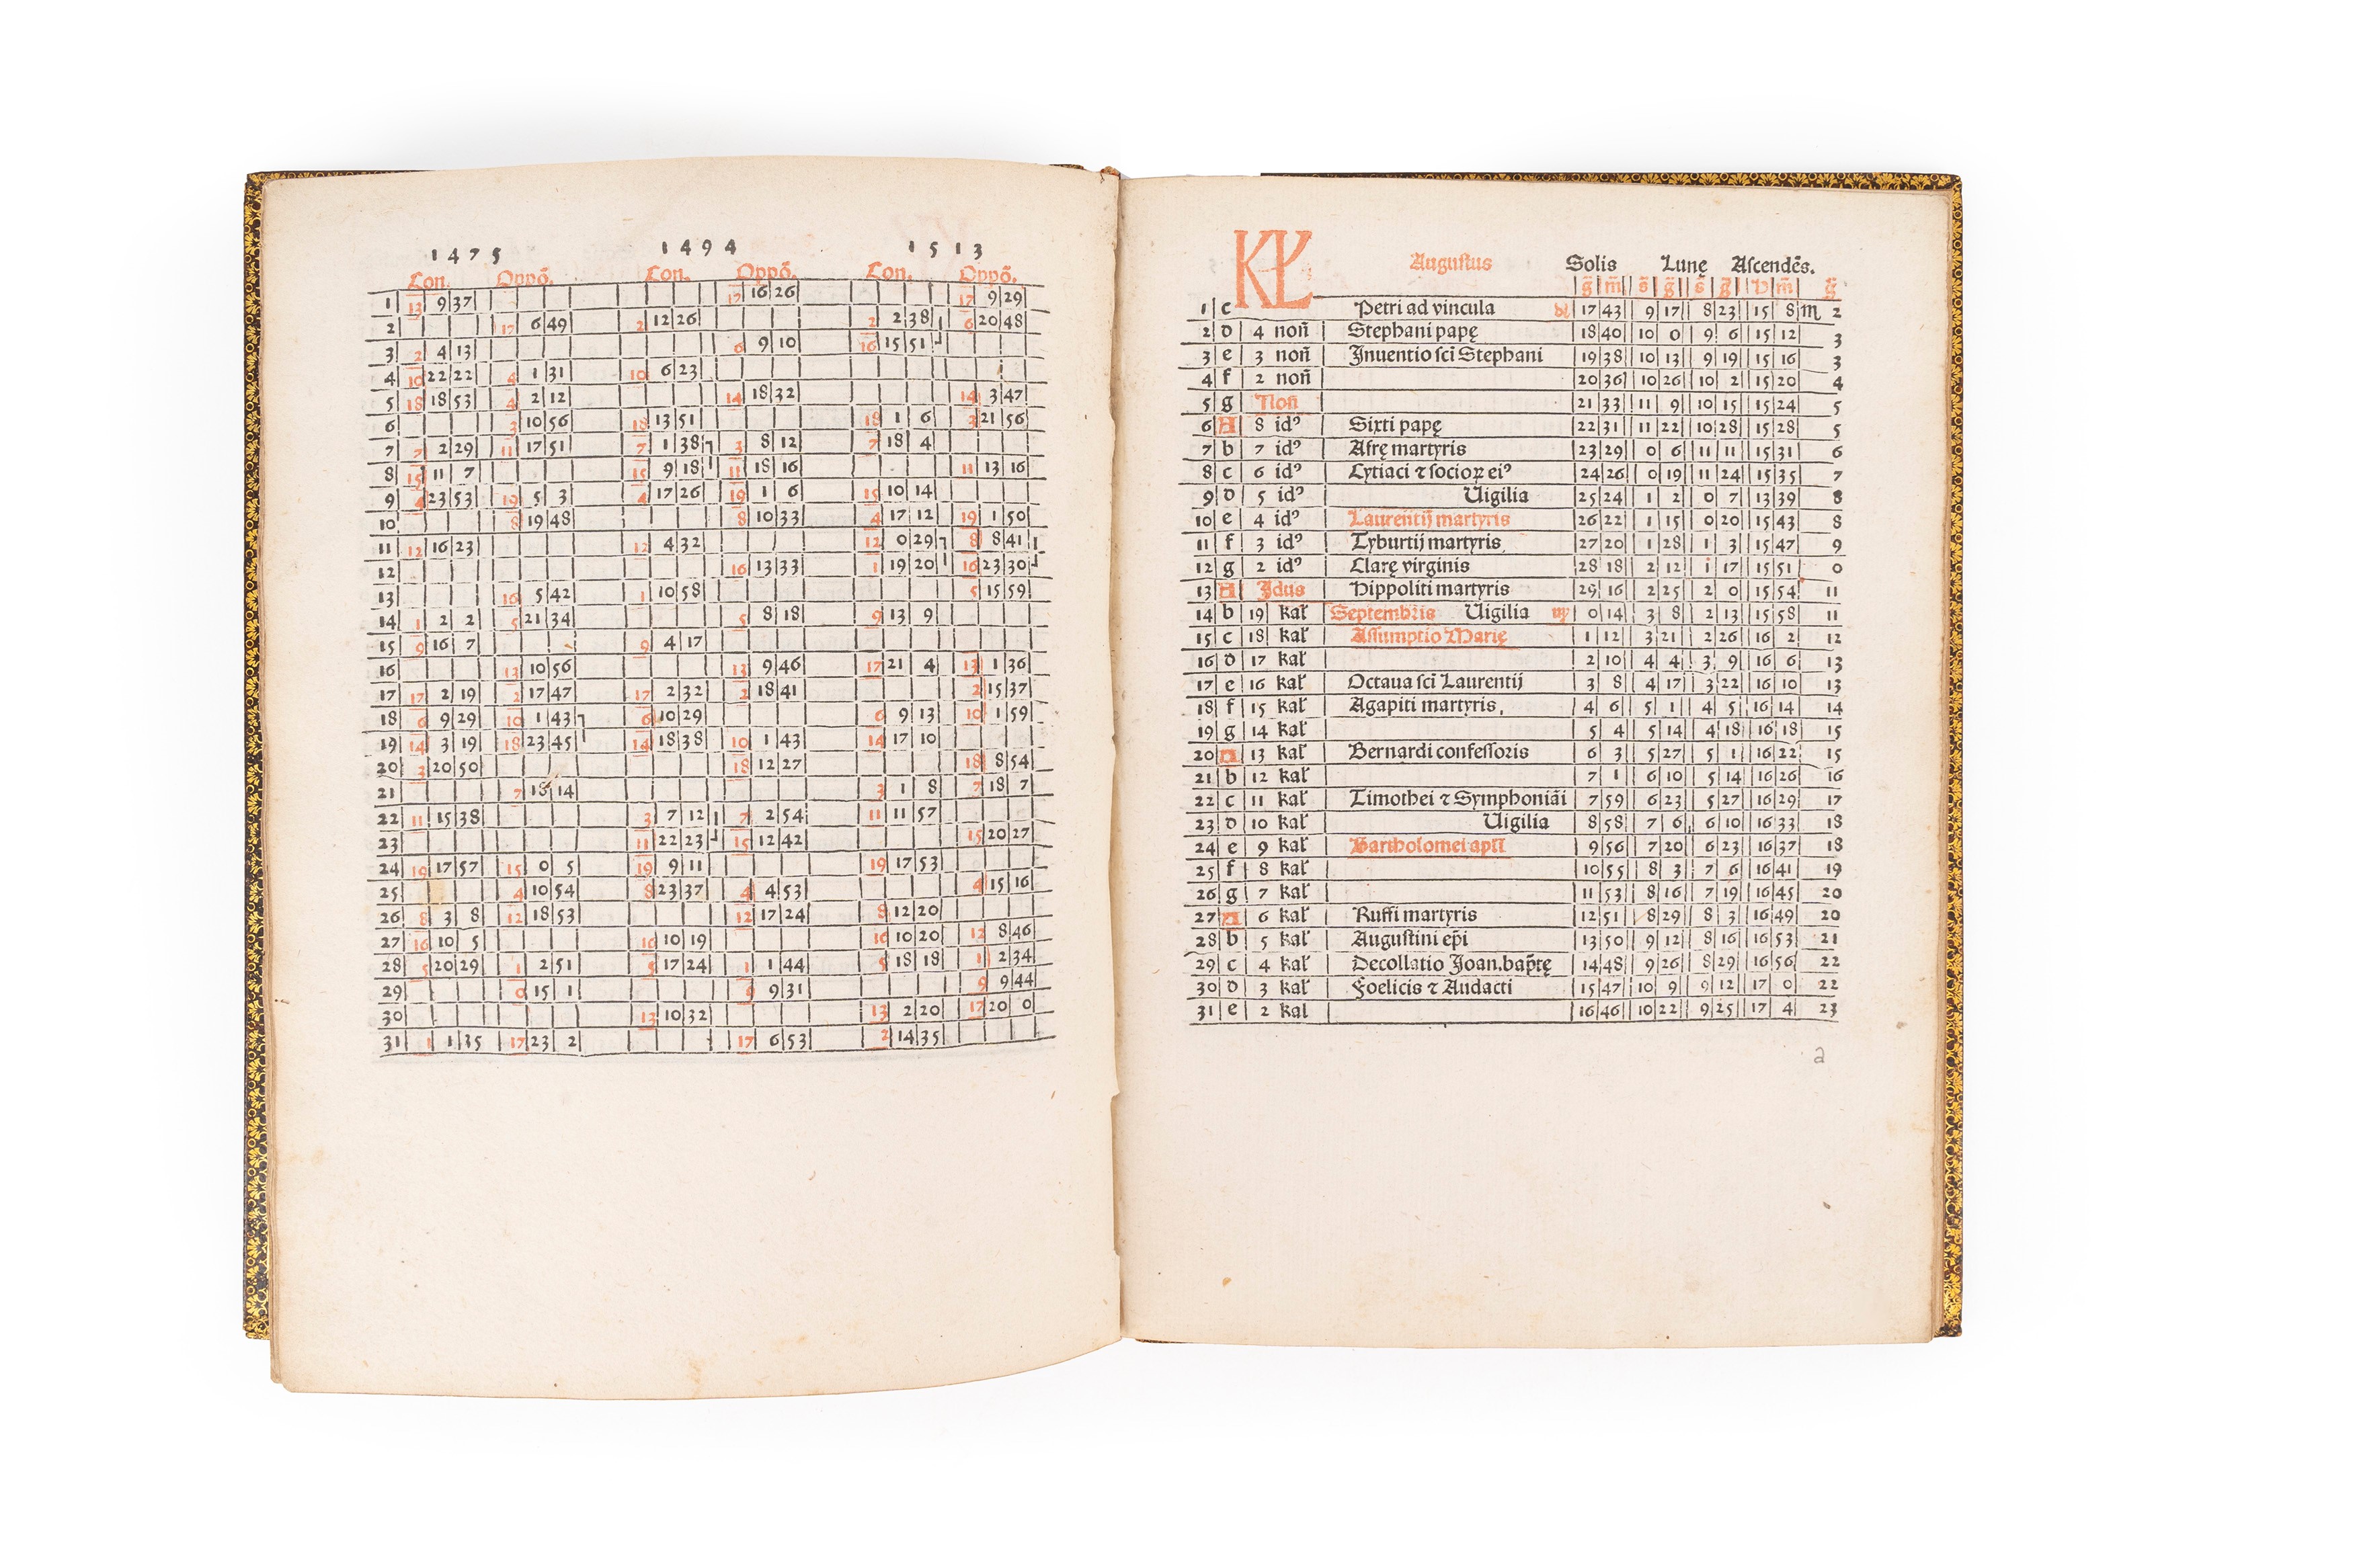 1475 1494 1513
Con. Oppõ. Con. Oppõ. Con. Oppõ.
1 13 9 37 17 16 26 17 9 29
2 17 6 49 2 12 26 2 2 38 6 20 48
3 2 4 13 6 9 10 16 15 51
4 10 22 22 4 1 31 10 6 23
5 18 18 53 4 2 12 14 18 32 14 3 47
6 3 10 56 18 13 51 18 1 6 3 21 56
7 7 2 29 11 17 51 7 1 38 3 8 12 7 18 4
8 15 11 7 15 9 18 11 18 16 11 13 16
9 4 23 53 19 5 3 4 17 26 19 1 6 15 10 14
10 8 19 48 8 10 33 4 17 12 19 1 50
11 12 16 23 12 4 32 12 0 29 8 8 41
12 16 13 33 1 19 20 16 23 30
13 16 5 42 1 10 58 5 15 59
14 1 2 2 5 21 34 5 8 18 9 13 9
15 9 16 7 9 4 17
16 13 10 56 13 9 46 17 21 4 13 1 36
17 17 2 19 2 17 47 17 2 32 2 18 41 2 15 37
18 6 9 29 10 1 43 6 10 29 6 9 13 10 1 59
19 14 3 19 18 23 45 14 18 38 10 1 43 14 17 10
20 3 20 50 18 12 27 18 8 54
21 7 18 14 3 1 8 7 18 7
22 11 15 38 3 7 12 7 2 54 11 11 57
23 11 22 23 15 12 42 15 20 27
24 19 17 57 15 0 5 19 9 11 19 17 53
25 4 10 54 8 23 37 4 4 53 4 15 16
26 8 3 8 12 18 53 12 17 24 8 12 20
27 16 10 5 16 10 19 16 10 20 12 8 46
28 5 20 29 1 2 51 5 17 24 1 1 44 5 18 18 1 2 34
29 9 15 1 9 9 31 9 9 44
30 13 10 32 13 2 20 17 20 0
31 1 1 35 17 23 2 17 6 53 2 14 35
KL Augustus Solis Lunę Ascendẽs.
g̃ m̃ s̃ g̃ s̃ g̃ h̃ m̃ g̃
1 c Petri ad vincula ♌ 17 43 9 17 8 23 15 8 ♏ 2
2 d 4 noñ Stephani papę 18 40 10 0 9 6 15 12 3
3 e 3 noñ Inuentio sci Stephani 19 38 10 13 9 19 15 16 3
4 f 2 noñ 20 36 10 26 10 2 15 20 4
5 g Noñ 21 33 11 9 10 15 15 24 5
6 A 8 idꝰ Sixti papę 22 31 11 22 10 28 15 28 5
7 b 7 idꝰ Afrę martyris 23 29 0 6 11 11 15 31 6
8 c 6 idꝰ Cytiaci ⁊ socioꝝ eiꝰ 24 26 0 19 11 24 15 35 7
9 d 5 idꝰ Uigilia 25 24 1 2 0 7 13 39 8
10 e 4 idꝰ Laurentij martyris 26 22 1 15 0 20 15 43 8
11 f 3 idꝰ Tyburtij martyris 27 20 1 28 1 3 15 47 9
12 g 2 idꝰ Clarę virginis 28 18 2 12 1 17 15 51 0
13 A Idus Hippoliti martyris 29 16 2 25 2 0 15 54 11
14 b 19 kal̃ Septembris Uigilia ♍ 0 14 3 8 2 13 15 58 11
15 c 18 kal̃ Assumptio Marię 1 12 3 21 2 26 16 2 12
16 d 17 kal̃ 2 10 4 4 3 9 16 6 13
17 e 16 kal̃ Octaua sci Laurentij 3 8 4 17 3 22 16 10 13
18 f 15 kal̃ Agapiti martyris 4 6 5 1 4 5 16 14 14
19 g 14 kal̃ 5 4 5 14 4 18 16 18 15
20 A 13 kal̃ Bernardi confessoris 6 3 5 27 5 1 16 22 15
21 b 12 kal̃ 7 1 6 10 5 14 16 26 16
22 c 11 kal̃ Timothei ⁊ Symphoniãi 7 59 6 23 5 27 16 29 17
23 d 10 kal̃ Uigilia 8 58 7 6 6 10 16 33 18
24 e 9 kal̃ Bartholomei apl̃i 9 56 7 20 6 23 16 37 18
25 f 8 kal̃ 10 55 8 3 7 6 16 41 19
26 g 7 kal̃ 11 53 8 16 7 19 16 45 20
27 A 6 kal̃ Ruffi martyris 12 51 8 29 8 3 16 49 20
28 b 5 kal̃ Augustini ep̃i 13 50 9 12 8 16 16 53 21
29 c 4 kal̃ Decollatio Joan. bap̃tę 14 48 9 26 8 29 16 56 22
30 d 3 kal̃ Foelicis ⁊ Audacti 15 47 10 9 9 12 17 0 22
31 e 2 kal 16 46 10 22 9 25 17 4 23
a